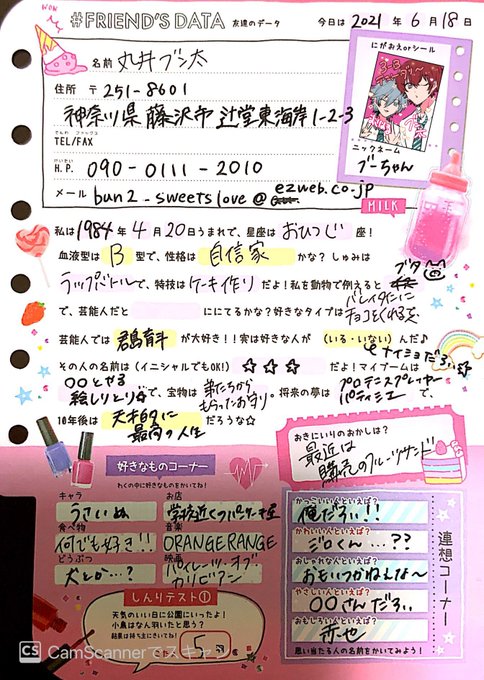 WOW
#FRIEND'S DATA 友達のデータ 今日は 2021 年 6 月 18 日
名前 丸井ブン太
にがおえorシール
住所 〒251-8601
神奈川県藤沢市辻堂東海岸1-2-3
でんわ ファックス
TEL/FAX
けいたい
H.P. 090-0111-2010
ニックネーム
ブーちゃん
メール bun2_sweetslove@ezweb.co.jp
MILK
私は1984年4月20日うまれで、星座はおひつじ座!
血液型はB型で、性格は自信家かな?しゅみは
ラップバトルで、特技はケーキ作りだよ!私を動物で例えるとブタ
で、芸能人だと ににてるかな?好きなタイプはバレンタインにチョコをくれる子
で、芸能人では君島育斗が大好き!!実は好きな人が(いる・いない)んだ♪
ナイショだろぃ
その人の名前は(イニシャルでもOK!)☆☆☆だよ!マイブームは
〇〇とやる絵しりとり☆で、宝物は弟たちからもらったお守り。将来の夢はプロテニスプレーヤー パティシエで、
10年後は天才的に最高の人生だろうな☆
おきにいりのおかしは?
最近は購売のフルーツサンド
好きなものコーナー
わくの中に好きなものをかいてね!
キャラ うさいぬ
お店 学校近くのケーキ屋
食べ物 何でも好き!!
音楽 ORANGERANGE
どうぶつ 犬とか…?
映画 パイレーツ・オブ・カリビアン
しんりテスト①
天気のいい日に公園にいったよ!
小鳥はなん羽いたと思う?
5羽
連想コーナー
かっこいい人といえば?
俺だろぃ!!
かわいい人といえば?
ジロくん…??
おしゃれな人といえば?
おもいつかねぇな〜
やさしい人といえば?
〇〇さんだろぃ
おもしろい人といえば?
赤也
思い当たる人の名前をかいてみよう!
CS CamScannerでスキャン